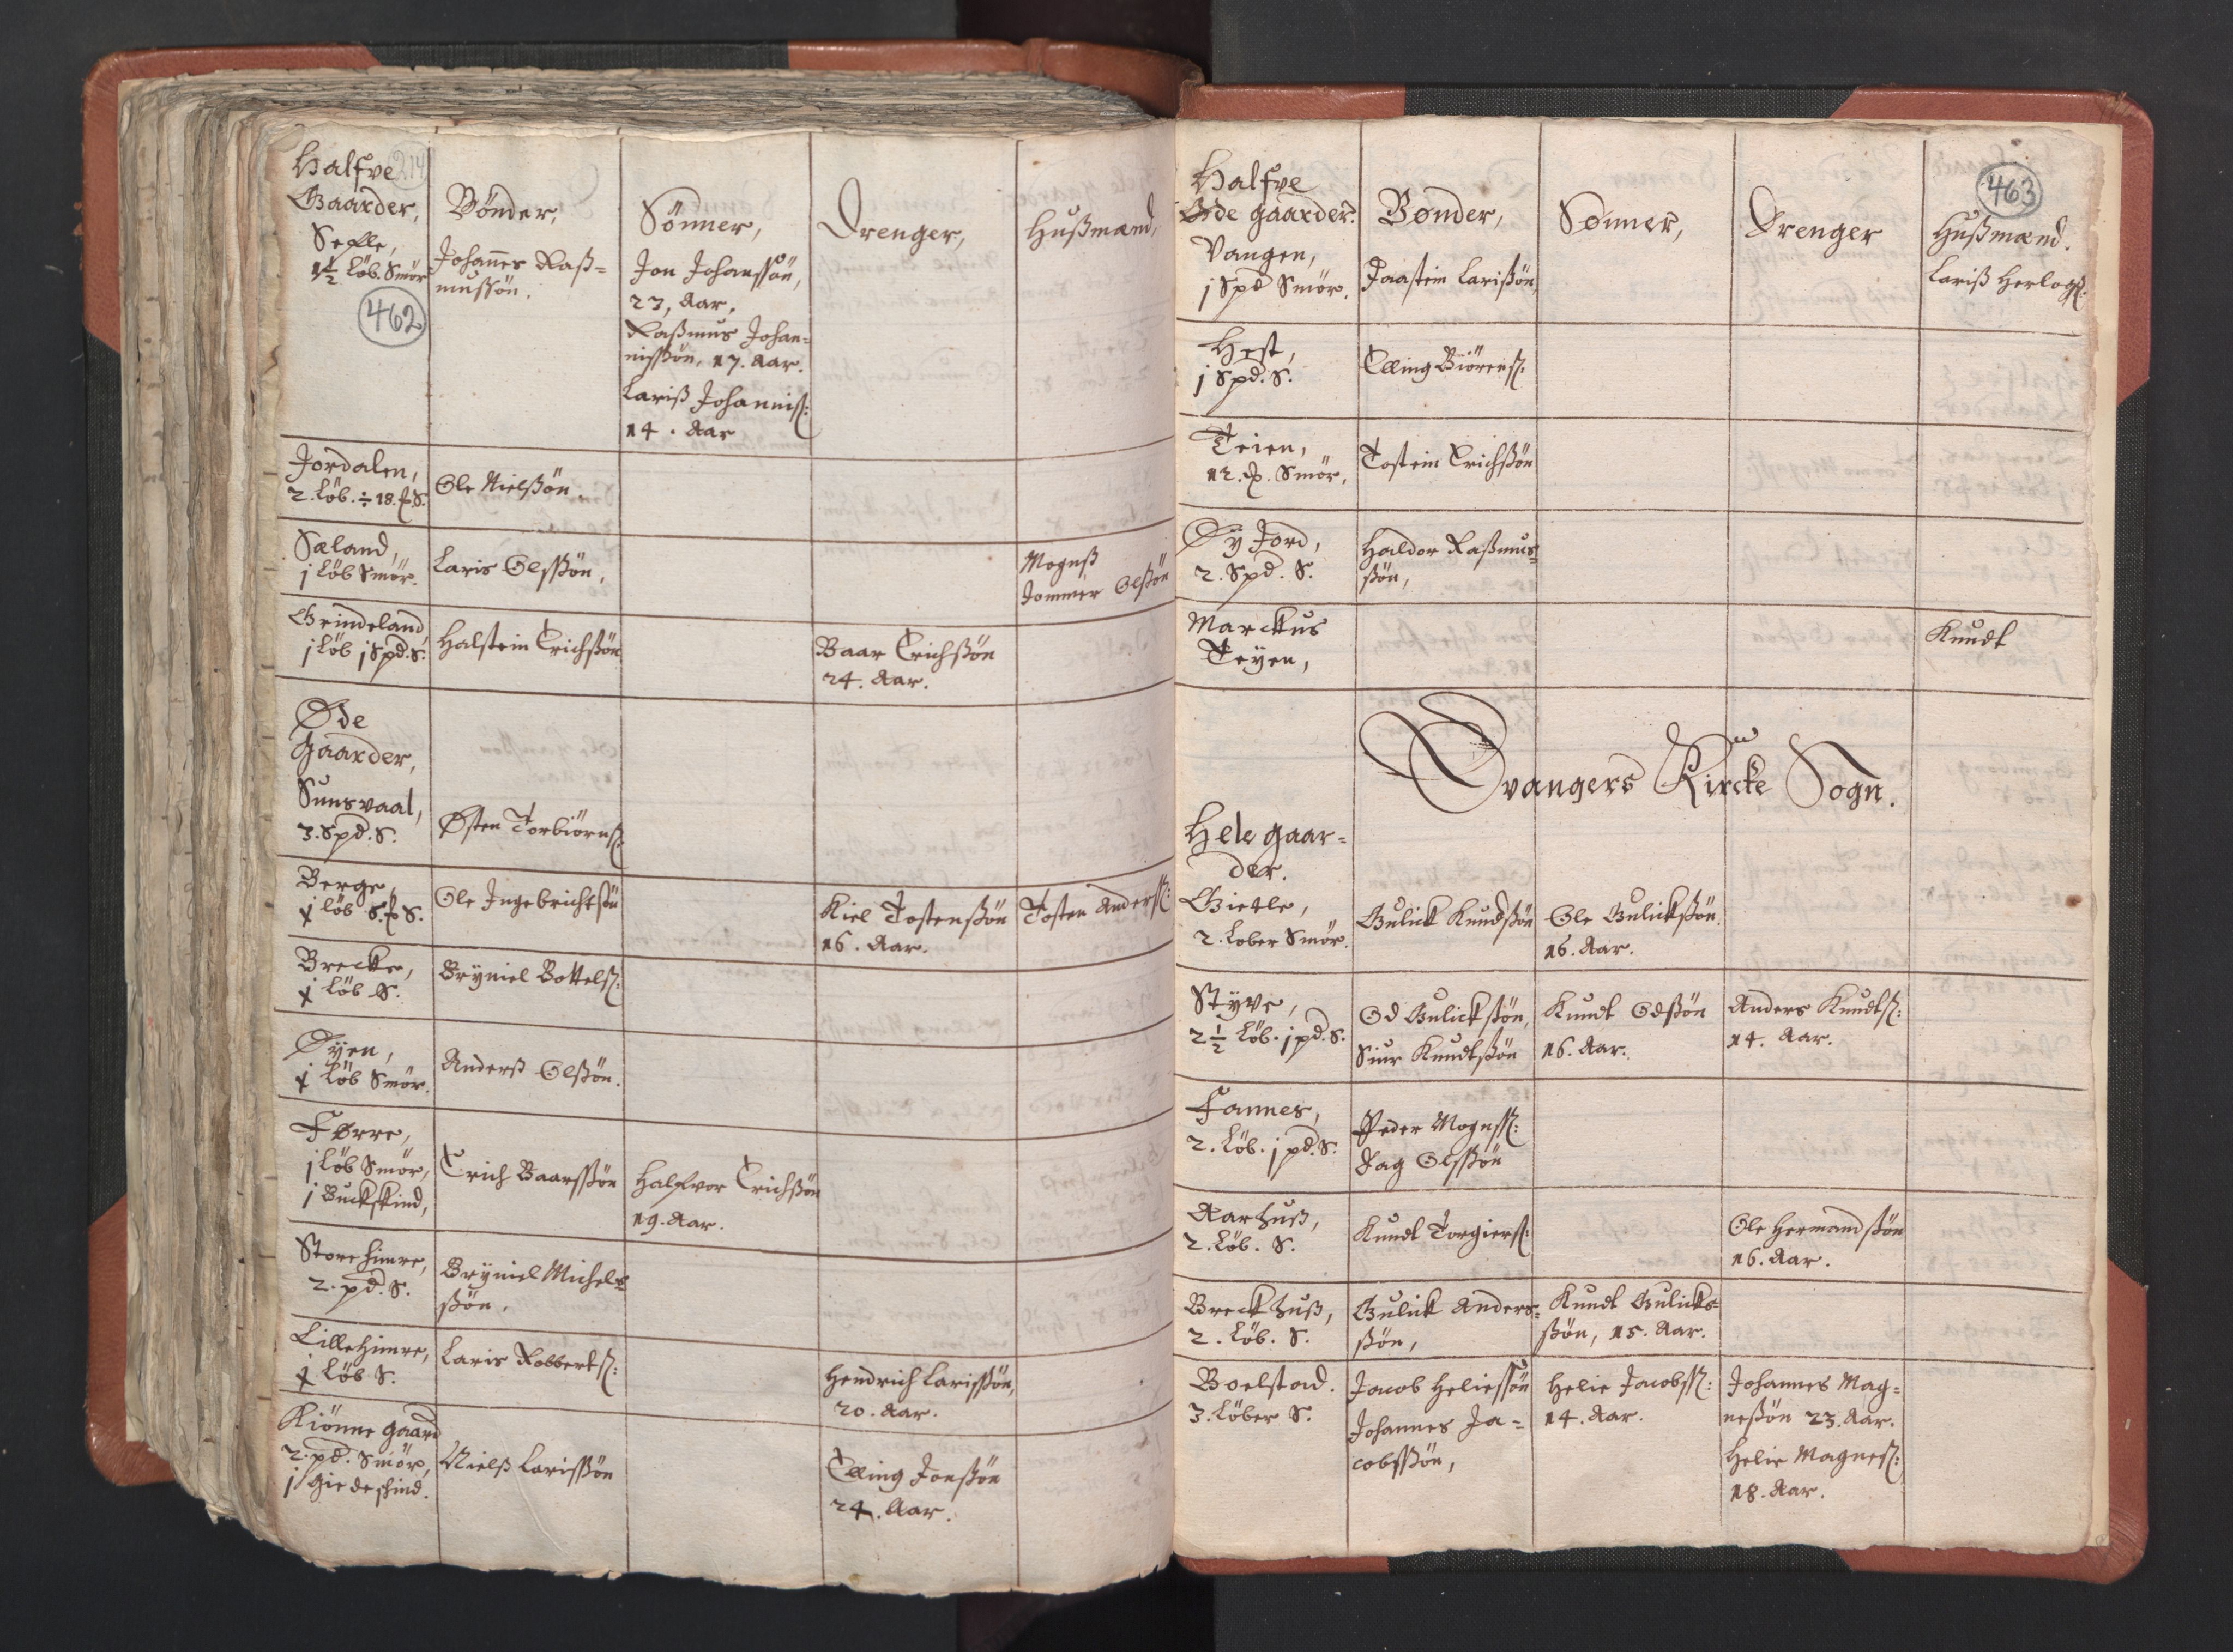 214
Halfve
Gaarder,
Bönder,
Sönner,
Drenger,
Hußmænd,
Seflle,
1½ Löb. Smör
Johannes Raß=
mußön.
Jon Johanssön,
23, Aar,
462
Raßmus Johan=
nißön, 17. Aar.
Lariß Johanniß:
14. Aar
Jordalen,
2. Löb. ÷ 18. S.
Ole Nielßön.
Sæland,
j Löb Smör.
Laris Olßön,
Mogenß
Jommer Olßön
Grindeland
j Löb j Spd. S.
Halstein Erichßön
Baar Erichßön
24. Aar.
Øde
Gaarder,
Sunsvaal,
3. Spd. S.
Østen Torbiörnß:
Berge,
j Löb S.
Ole Ingebrichtßön
Kiel Tostenßön
16. Aar.
Tosten Anderß:
Brecke,
j Löb S.
Bryniel Bottelß:
Øyen,
j Löb Smör.
Anderß Olßön.
Førre,
j Löb Smör,
j Buckskind,
Erich Baarßön
Halfvor Erichßön
19. Aar.
Store himre,
2. pd. S.
Bryniel Michels=
ßön,
Lille Himre,
j Löb S.
Laris Robbertß:
Hendrich Larißön,
20. Aar.
Kiönne gaard
2. pd. Smör,
j Giedeskind.
Nielß Larißön
Elling Jonßön
24. Aar.
463
Halfve
Øde gaarder.
Bønder,
Sønner,
Drenger
Hußmænd.
Vangen,
j Spd Smör.
Jaastein Larißön,
Lariß Herlogß:
Hest,
j Spd. S.
Elling Biörenß:
Teien,
12. Smör,
Tostein Erichßön
Øy Jord,
2. Spd. S.
Haldor Raßmus=
ßön,
Marckus
Teyen,
Knudt
Evangers Kircke Sogn.
Hele gaar=
der.
Gietle,
2. Løber Smör.
Gulick Knudßön
Ole Gulickßön.
16. Aar.
Styve,
2½ Löb. j pd. S.
Od Gulickßön,
Siur Knudtßön
Knudt Odßön
16. Aar.
Anders Knudtß:
14. Aar.
Fannes,
2. Löb. j pd. S.
Peder Mogenß:
Dag Olßön
Aarhuß,
2. Löb. S.
Knudt Torgierß:
Ole Hermandßön
16. Aar.
Breckhuß,
2. Löb. S.
Gulick Anders=
ßön,
Knudt Gulicks=
ßön, 15. Aar.
Boelstad.
3. Löber S.
Jacob Heließön
Johannes Ja=
cobßön,
Helie Jacobß:
14. Aar.
Johannes Mag=
neßön 23. Aar.
Helie Magneß:
18. Aar.